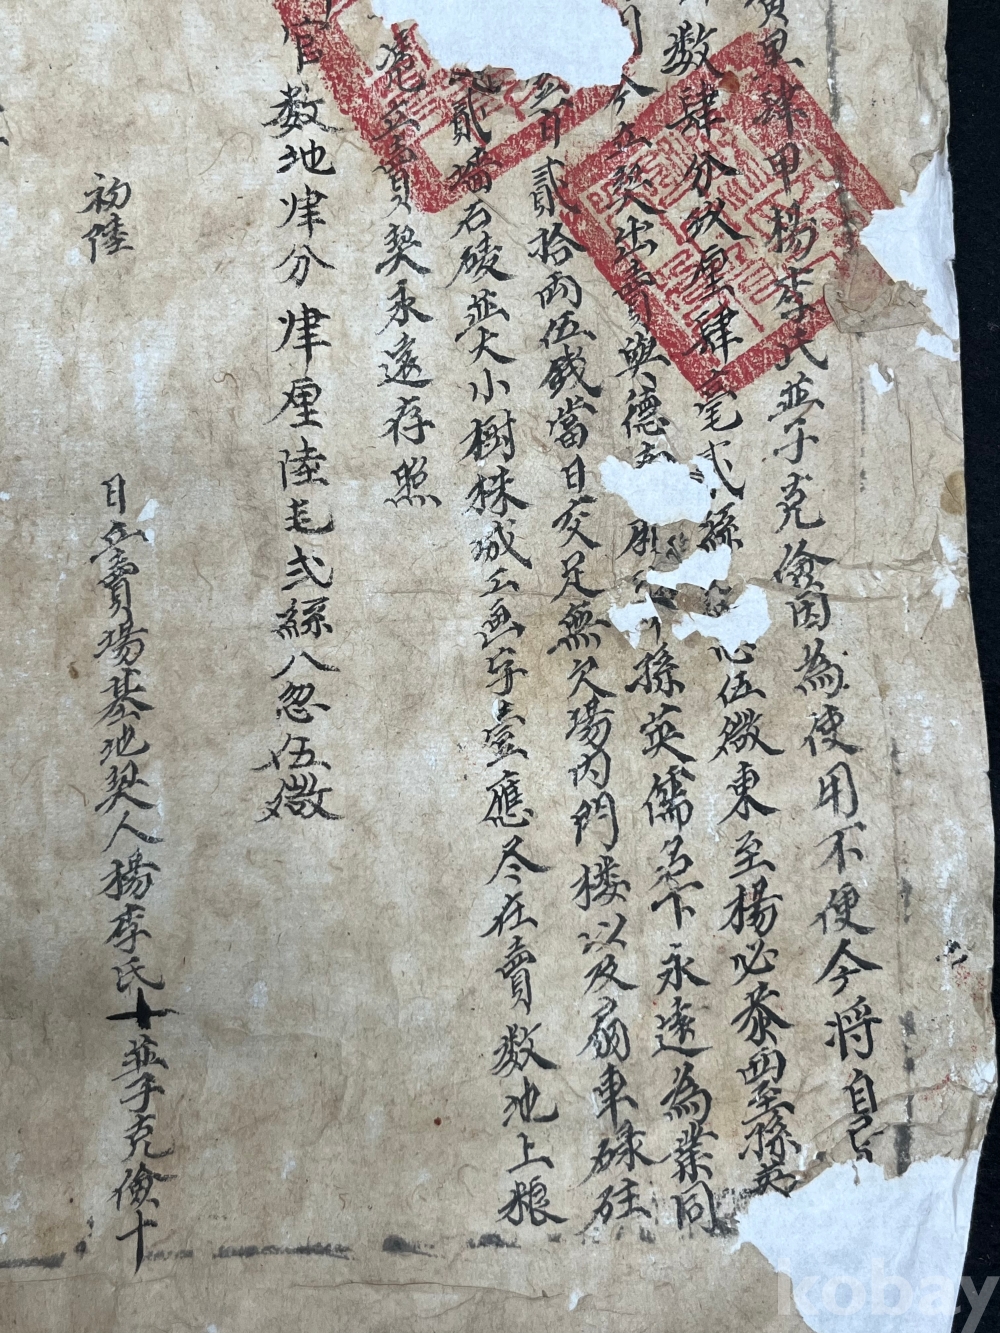 里肆甲楊李氏並子克儉因為使用不便今將自己
数肆分玖厘肆毫弍絲忽伍微東至楊必泰西至孫英
今立契出賣與德孫英儒名下永遠為業同
貳拾両伍錢當日交足無欠場内門楼以及扇車碌砫
貳墙石磙並大小樹株城工画字壹應尽在賣数地上粮
立賣契永遠存照
官数地肆分肆厘陸毛弍絲八忽伍微
初陸
日立賣場基地契人楊李氏十並子克儉十
kobay